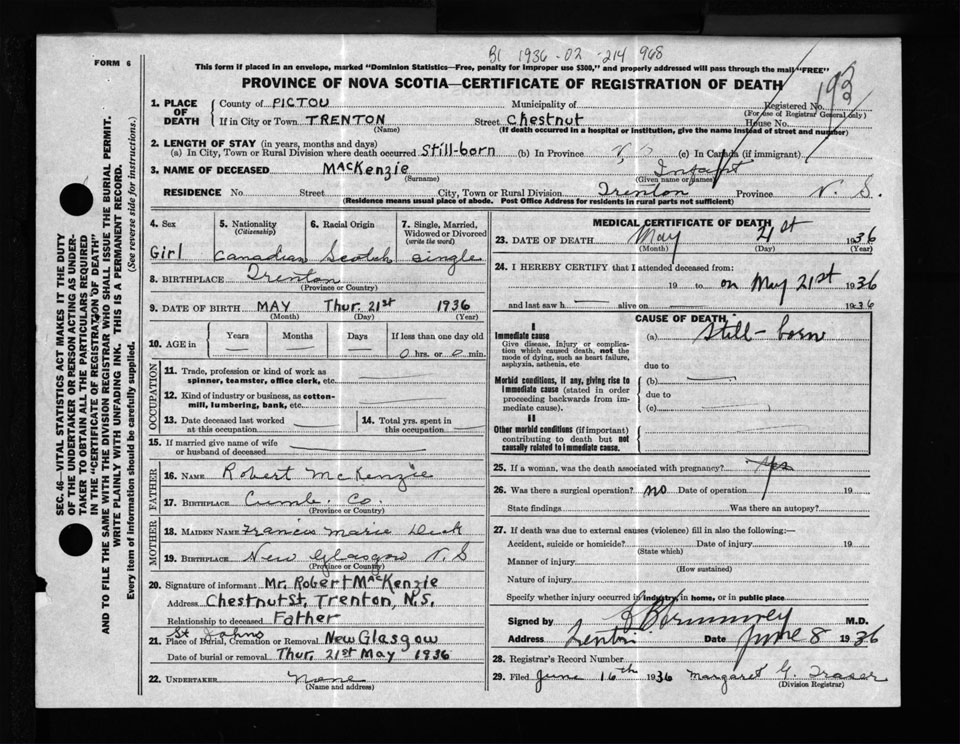 B1 1936-02-214 968
FORM 6
This form if placed in an envelope, marked "Dominion Statistics—Free, penalty for improper use $300," and properly addressed will pass through the mail "FREE"
PROVINCE OF NOVA SCOTIA—CERTIFICATE OF REGISTRATION OF DEATH
1. PLACE OF DEATH
County of PICTOU Municipality of Registered No.
(For use of Registrar General only)
If in City or Town TRENTON Street Chestnut House No.
(Name) (If death occurred in a hospital or institution, give the name instead of street and number)
2. LENGTH OF STAY (in years, months and days)
(a) In City, Town or Rural Division where death occurred Still-born (b) In Province (c) In Canada (if immigrant)
3. NAME OF DECEASED MacKenzie Infant
(Surname) (Given name or names)
RESIDENCE No. Street City, Town or Rural Division Trenton Province N. S.
(Residence means usual place of abode. Post Office Address for residents in rural parts not sufficient)
4. Sex 5. Nationality (Citizenship) 6. Racial Origin 7. Single, Married, Widowed or Divorced (write the word)
Girl Canadian Scotch single
8. BIRTHPLACE Trenton
(Province or County)
9. DATE OF BIRTH MAY Thur. 21st 1936
(Month) (Day) (Year)
10. AGE in Years Months Days If less than one day old
0 hrs. or 0 min.
OCCUPATION
11. Trade, profession or kind of work as spinner, teamster, office clerk, etc.
12. Kind of industry or business, as cotton-mill, lumbering, bank, etc.
13. Date deceased last worked at this occupation
14. Total yrs. spent in this occupation
15. If married give name of wife or husband of deceased
FATHER
16. NAME Robert McKenzie
17. BIRTHPLACE Cumb. Co.
(Province or County)
MOTHER
18. MAIDEN NAME Francis Marie
19. BIRTHPLACE New Glasgow N. S
(Province or County)
20. Signature of informant Mr. Robert MacKenzie
Address Chestnut St, Trenton, N.S.
Relationship to deceased Father
St Johns
21. Place of Burial, Cremation or Removal New Glasgow
Date of burial or removal Thur. 21st May 1936
22. UNDERTAKER None
(Name and address)
MEDICAL CERTIFICATE OF DEATH
23. DATE OF DEATH May 21st 1936
(Month) (Day) (Year)
24. I HEREBY CERTIFY that I attended deceased from:
19 to on May 21st 1936
and last saw h alive on 1936
CAUSE OF DEATH
I
Immediate cause
Give disease, injury or complication which caused death, not the mode of dying, such as heart failure, asphyxia, asthenia, etc
(a) Still-born
due to
Morbid conditions, if any, giving rise to immediate cause (stated in order proceeding backwards from immediate cause).
(b)
due to
(c)
II
Other morbid conditions (if important) contributing to death but not causally related to immediate cause.
25. If a woman, was the death associated with pregnancy? Yes
26. Was there a surgical operation? no Date of operation 19
State findings Was there an autopsy?
27. If death was due to external causes (violence) fill in also the following:—
Accident, suicide or homicide? Date of injury 19
(State which)
Manner of injury
(How sustained)
Nature of injury
Specify whether injury occurred in industry, in home, or in public place
Signed by M.D.
Address Trenton Date June 8 1936
28. Registrar's Record Number
29. Filed June 16th 1936 Margaret G. Fraser
(Division Registrar)
SEC. 46—VITAL STATISTICS ACT MAKES IT THE DUTY
OF THE UNDERTAKER OR PERSON ACTING AS UNDER-
TAKER TO OBTAIN ALL THE PARTICULARS REQUIRED
IN THE "CERTIFICATE OF REGISTRATION OF DEATH"
AND TO FILE THE SAME WITH THE DIVISION REGISTRAR WHO SHALL ISSUE THE BURIAL PERMIT.
WRITE PLAINLY WITH UNFADING INK. THIS IS A PERMANENT RECORD.
Every item of information should be carefully supplied. (See reverse side for instructions.)